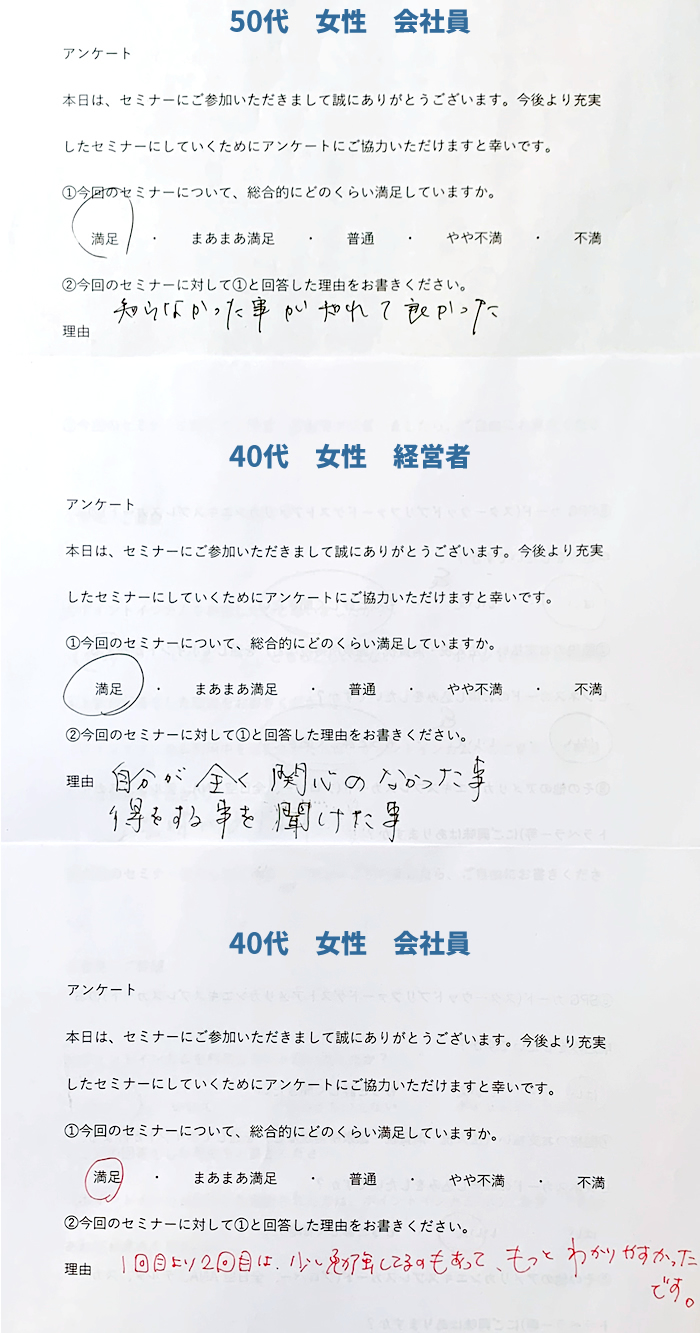 50代　女性　会社員
アンケート
本日は、セミナーにご参加いただきまして誠にありがとうございます。今後より充実
したセミナーにしていくためにアンケートにご協力いただけますと幸いです。
①今回のセミナーについて、総合的にどのくらい満足していますか。
満足　・　まあまあ満足　・　普通　・　やや不満　・　不満
②今回のセミナーに対して①と回答した理由をお書きください。
知らなかった事が知れて良かった
理由
40代　女性　経営者
アンケート
本日は、セミナーにご参加いただきまして誠にありがとうございます。今後より充実
したセミナーにしていくためにアンケートにご協力いただけますと幸いです。
①今回のセミナーについて、総合的にどのくらい満足していますか。
満足　・　まあまあ満足　・　普通　・　やや不満　・　不満
②今回のセミナーに対して①と回答した理由をお書きください。
理由　自分が全く関心のなかった事
得をする事を聞けた事
40代　女性　会社員
アンケート
本日は、セミナーにご参加いただきまして誠にありがとうございます。今後より充実
したセミナーにしていくためにアンケートにご協力いただけますと幸いです。
①今回のセミナーについて、総合的にどのくらい満足していますか。
満足　・　まあまあ満足　・　普通　・　やや不満　・　不満
②今回のセミナーに対して①と回答した理由をお書きください。
理由　1回目より2回目は、少し勉強してるのもあって、もっとわかりやすかった
です。